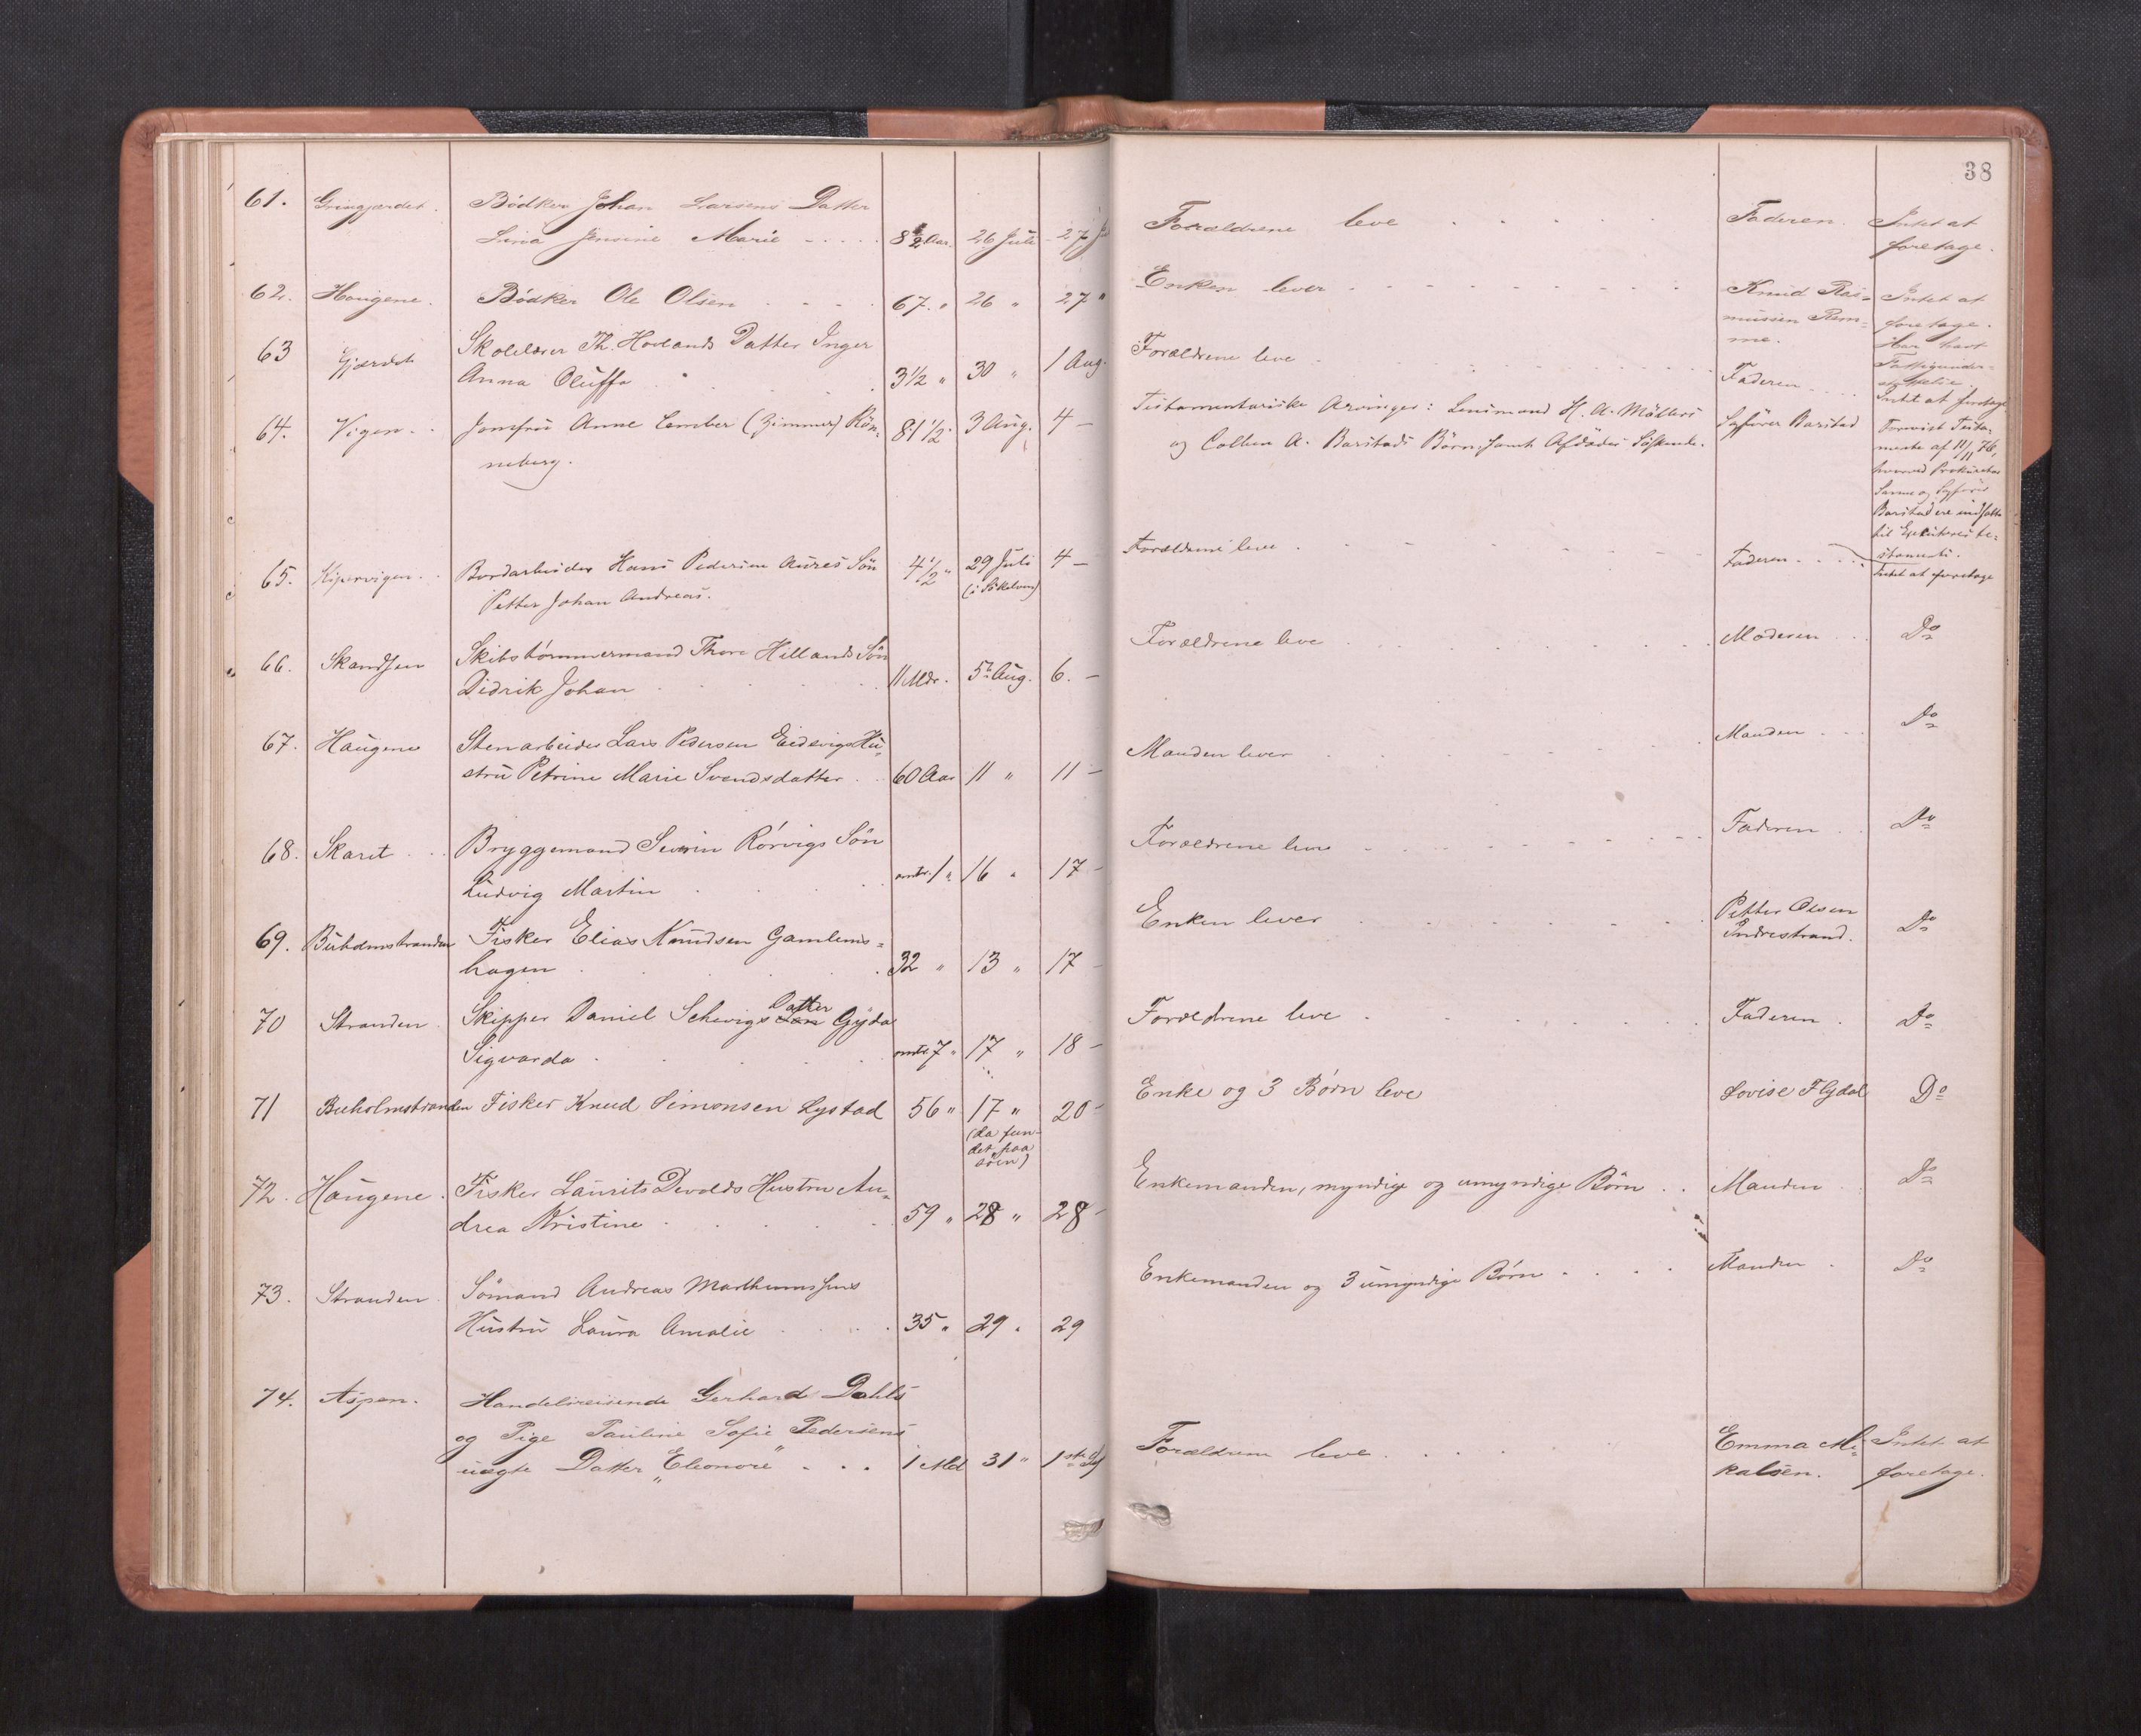 38
61. Gringjærdet. Bödker Johan Larsens Datter
Lina Jensine Marie 8½ Aar. 26 Juli 27 Forældrene leve Faderen. Intet at
foretage.
62. Hougene. Bödker Ole Olsen 67. " 26 " 27 " Enken lever Knud Ras-
mussen Rem-
me. Intet at
foretage.
Har havt
Fattigunder-
støttelse.
63 Gjærdet Skolelærer Th. Hovlands Datter Inger
Anna Oluffa 3½ " 30 " 1 Aug. Forældrene leve Faderen Intet at foretage
64. Vigen Jomfru Anne Cember (Zimmer) Rön-
neberg. 81½. 3 Aug. 4 – Testamentariske Arvinger: Lensmand H. A. Möllers
og A. Barstads Börn, samt Afdødes Söskende. Sagfører Barstad Forevist Testa-
mente af 11/11 76,
hvorved Prokurator
og Sagfører
Barstad ere indsatte
til Executores te-
stamenti.
65. Kipervigen Bordarbeider Hans Pedersen Aures Sön
Petter Johan Andreas. 4½ " 29 Juli
(i Sökelven) 4 – Forældrene leve Faderen Intet at foretage
66. Skandsen Skibstömmermand Thore Hillands Sön
Didrik Johan 11 Mdr. 5te Aug. 6. – Forældrene leve Moderen Do
67. Haugene Stenarbeider Lars Pedersen Eidsvigs Hu-
stru Petrine Marie Svendsdatter 60 Aar 11 " 11 – Manden lever Manden Do
68. Skaret Bryggemand Severin Rörvigs Sön
Ludvig Martin omtr. 1 " 16 " 17 – Forældrene leve Faderen Do
69. Buholmstranden Fisker Elias Knudsen Gamlems-
hagen 32 " 13 " 17 – Enken lever Petter Olsen
Indrestrand. Do
70 Stranden Skipper Daniel Schevigs Sön Datter Gyda
Sigvarda omtr 7 " 17 " 18 – Forældrene leve Faderen Do
71 Buholmstranden Fisker Knud Simonsen Lystad 56 " 17 "
(da fun-
det paa
söen) 20 – Enke og 3 Börn leve Lovise Flydal Do
72. Haugene Fisker Laurits Devolds Hustru An-
drea Kristine 59 " 28 " 28 – Enkemanden, myndige og umyndige Börn Manden Do
73. Stranden Sömand Andreas Marthinussens
Hustru Laura Amalie 35 " 29 " 29 Enkemanden og 3 umyndige Börn Manden Do
74. Aspen. Handelsreisende Gerhard Dahls
og Pige Pauline Sofie Pedersens
uægte Datter "Eleonore" 1 Md 31 " 1ste Forældrene leve Emma Mi-
kalsen. Intet at
foretage.